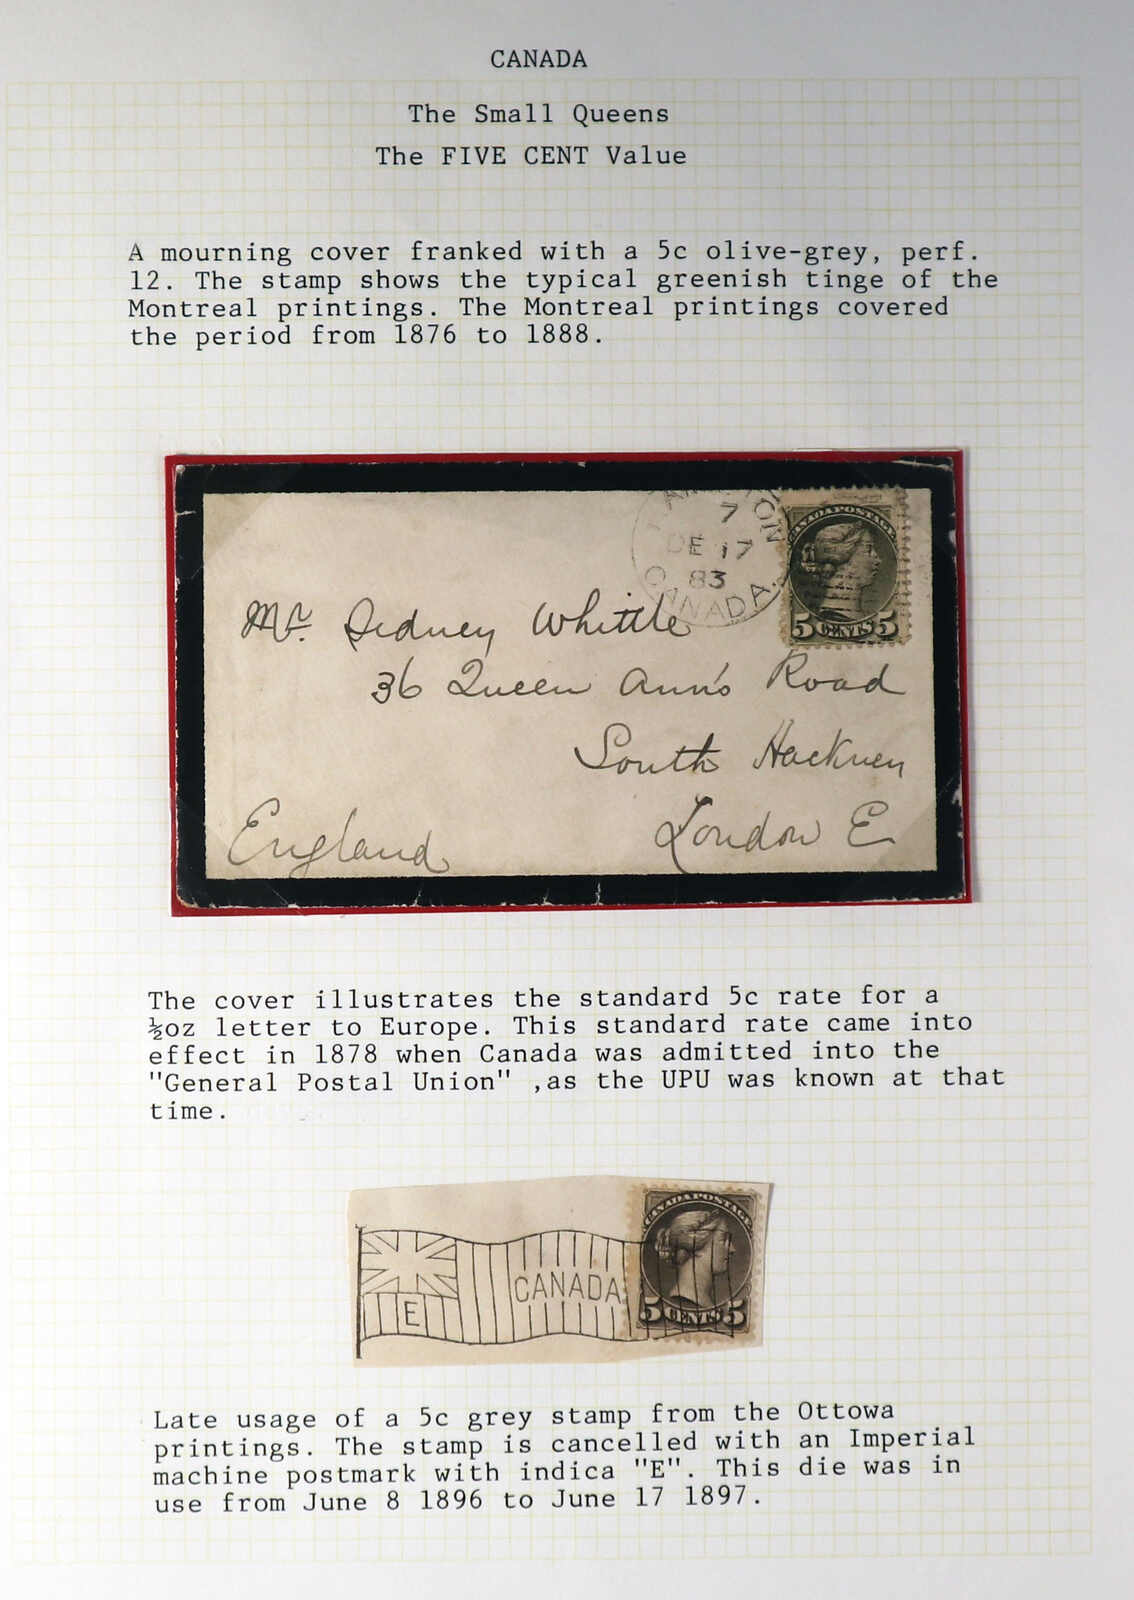 CANADA
The Small Queens
The FIVE CENT Value
A mourning cover franked with a 5c olive-grey, perf.
12. The stamp shows the typical greenish tinge of the
Montreal printings. The Montreal printings covered
the period from 1876 to 1888.
7
DE 17
83
CANADA.
CANADA POSTAGE
5 CENTS 5
Mr. Sidney Whittle
36 Queen Ann's Road
South Hackney
London E
England
The cover illustrates the standard 5c rate for a
½oz letter to Europe. This standard rate came into
effect in 1878 when Canada was admitted into the
"General Postal Union" ,as the UPU was known at that
time.
CANADA POSTAGE
E
CANADA
5 CENTS 5
Late usage of a 5c grey stamp from the Ottowa
printings. The stamp is cancelled with an Imperial
machine postmark with indica "E". This die was in
use from June 8 1896 to June 17 1897.